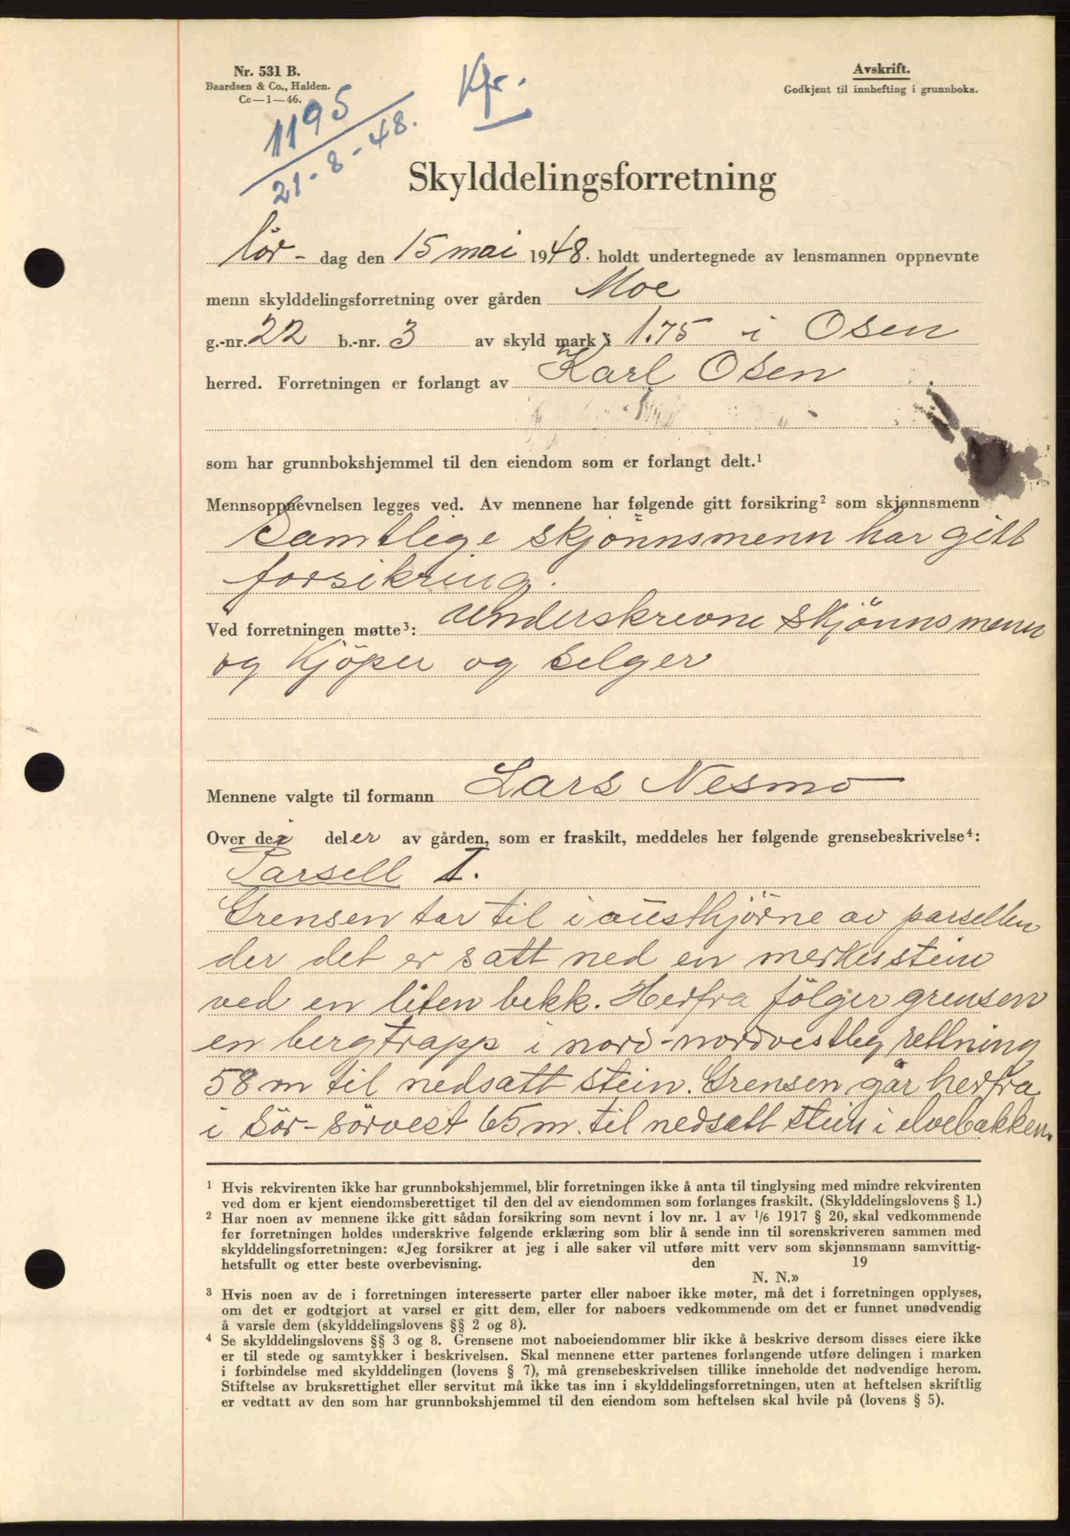 Nr. 531 B.
Baardsen & Co., Halden.
Cc—1—46.
Avskrift.
Godkjent til innhefting i grunnboka.
1195
21-8-48.
Kfr.
Skylddelingsforretning
lör- dag den 15 mai 1948. holdt undertegnede av lensmannen oppnevnte
menn skylddelingsforretning over gården Moe
g.-nr. 22 b.-nr. 3 av skyld mark 1.75 i Osen
herred. Forretningen er forlangt av Karl Osen
som har grunnbokshjemmel til den eiendom som er forlangt delt.¹
Mennsoppnevnelsen legges ved. Av mennene har følgende gitt forsikring² som skjønnsmenn
Samtlige skjönnsmenn har gitt
forsikring.
Ved forretningen møtte³: Underskrevne skjönnsmenn
og kjöper og selger
Mennene valgte til formann Lars Nesmo
Over dei deler av gården, som er fraskilt, meddeles her følgende grensebeskrivelse⁴:
Parsell I.
Grensen tar til i austhjörne av parsellen
der det er satt ned en merkesstein
ved en liten bekk. Herfra fölger grensen
en bergtrapp i nord-nordvestleg rettning
58 m til nedsatt stein. Grensen går herfra
i sör-sörvest 65 m. til nedsatt stein i elvebakken.
¹ Hvis rekvirenten ikke har grunnbokshjemmel, blir forretningen ikke å anta til tinglysing med mindre rekvirenten
ved dom er kjent eiendomsberettiget til den del av eiendommen som forlanges fraskilt. (Skylddelingslovens § 1.)
² Har noen av mennene ikke gitt sådan forsikring som nevnt i lov nr. 1 av 1/6 1917 § 20, skal vedkommende
før forretningen holdes underskrive følgende erklæring som blir å sende inn til sorenskriveren sammen med
skylddelingsforretningen: «Jeg forsikrer at jeg i alle saker vil utføre mitt verv som skjønnsmann samvittig-
hetsfullt og etter beste overbevisning. den 19
N. N.»
³ Hvis noen av de i forretningen interesserte parter eller naboer ikke møter, må det i forretningen opplyses,
om det er godtgjort at varsel er gitt dem, eller for naboers vedkommende om det er funnet unødvendig
å varsle dem (skylddelingslovens §§ 2 og 8).
⁴ Se skylddelingslovens §§ 3 og 8. Grensene mot naboeiendommer blir ikke å beskrive dersom disses eiere ikke
er til stede og samtykker i beskrivelsen. Skal mennene etter partenes forlangende utføre delingen i marken
i forbindelse med skylddelingen (lovens § 7), må grensebeskrivelsen tillike inneholde det nødvendige herom.
Stiftelse av bruksrettighet eller servitut må ikke tas inn i skylddelingsforretningen, uten at heftelsen skriftlig
er vedtatt av den som har grunnbokshjemmel til den eiendom som heftelsen skal hvile på (lovens § 5).